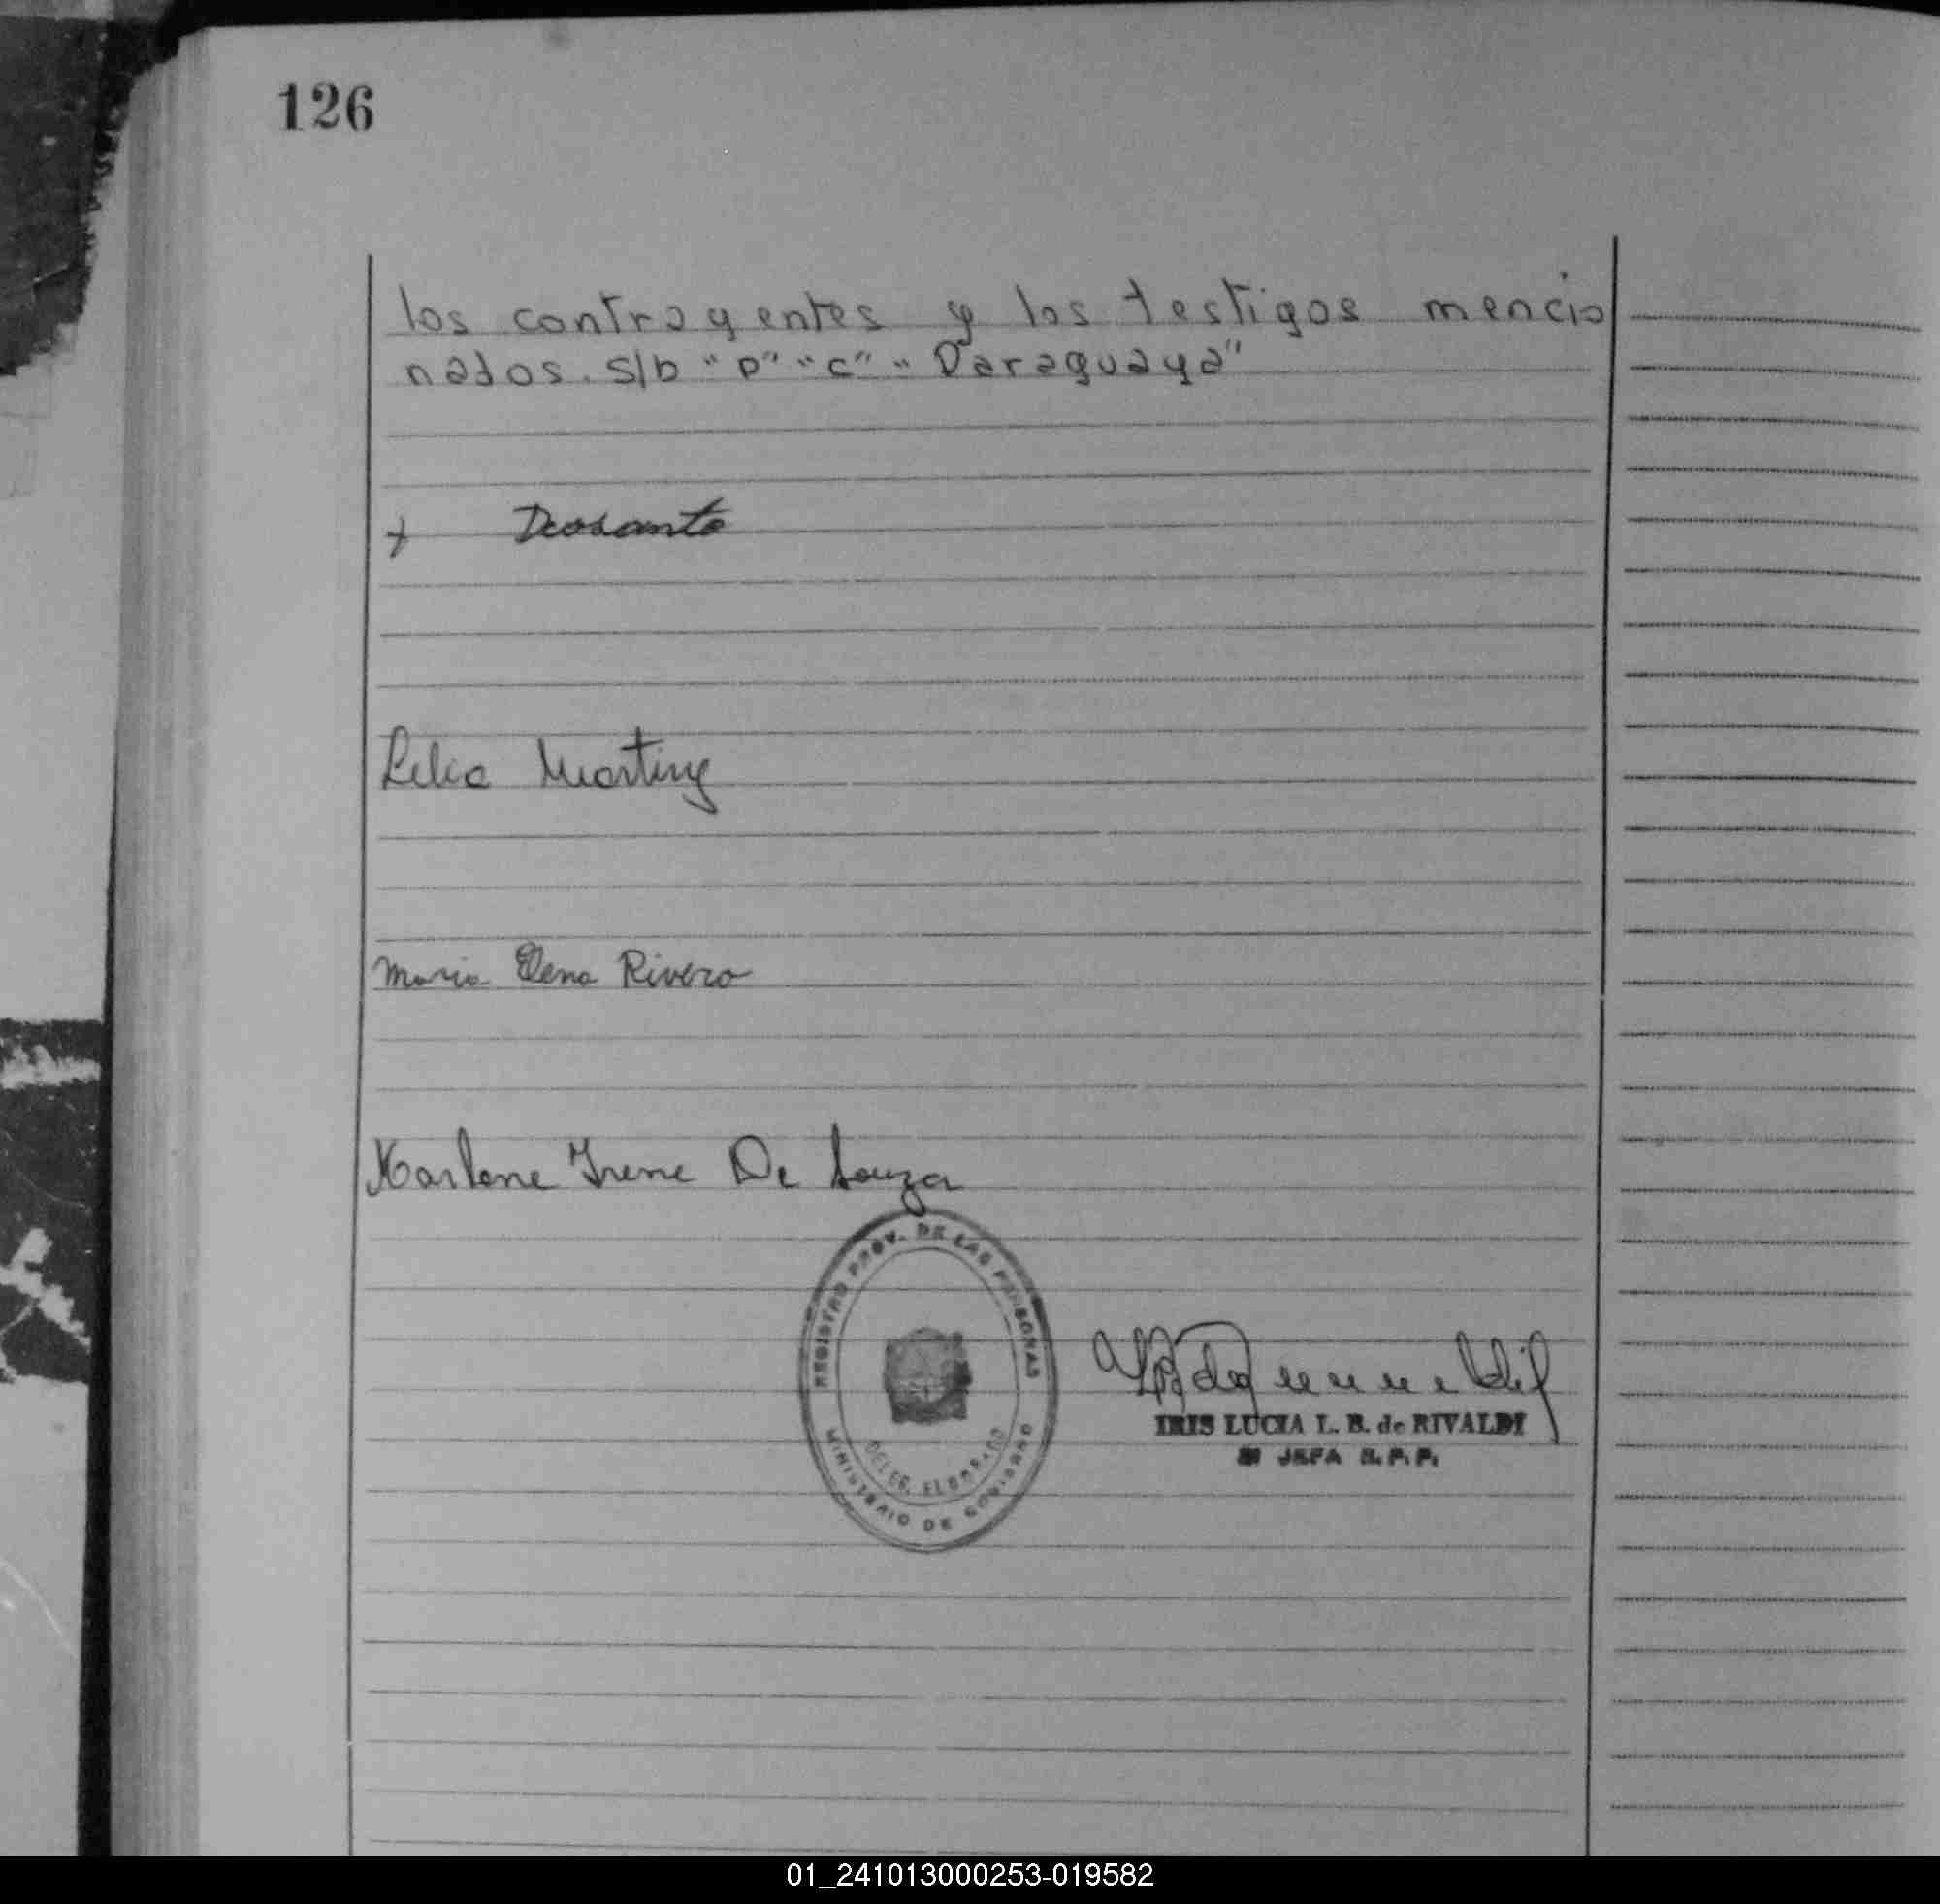 126
los contrayentes y los testigos mencio
nados. s/b "p" "c" "Paraguaya"
Lelia Martinz
Maria Elena Rivero
Marlene Irene De Souza
REGISTRO PROV. DE LAS PERSONAS
DELEG. ELDORADO
MINISTERIO DE GOBIERNO
IRIS LUCIA L. B. de RIVALDI
JEFA R. P. P.
01_241013000253-019582